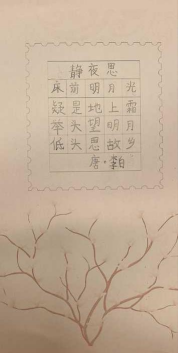 静夜思
床前明月光
疑是地上霜
举头望明月
低头思故乡
唐·李白